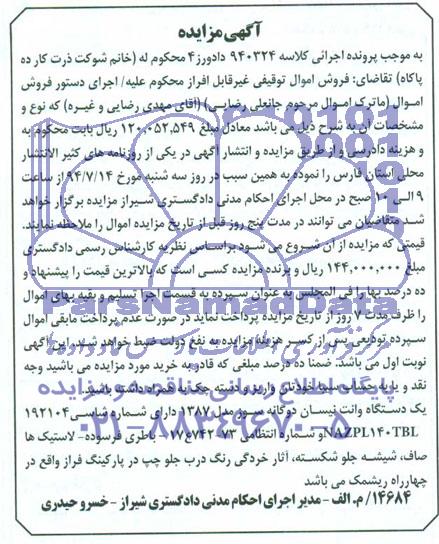 آگهی مزایده
به موجب پرونده اجرائی کلاسه ۹۴۰۳۲۴ دادورز۴ محکوم له (خانم شوکت ذرت کار ده
پاکاه) تقاضای: فروش اموال توقیفی غیرقابل افراز محکوم علیه/ اجرای دستور فروش
اموال (ماترک اموال مرحوم جانعلی رضایی) (آقای مهدی رضایی و غیره) که نوع و
مشخصات آن به شرح ذیل می باشد معادل مبلغ ۱۲۰,۰۵۲,۵۴۹ ریال بابت محکوم به
و هزینه دادرسی و از طریق مزایده و انتشار آگهی در یکی از روزنامه های کثیر الانتشار
محلی استان فارس را نموده به همین سبب در روز سه شنبه مورخ ۹۴/۷/۱۴ از
۹ الی ۱۰ صبح در محل اجرای احکام مدنی دادگستری شیراز مزایده برگزار خواهد
شد متقاضیان می توانند در مدت پنج روز قبل از تاریخ مزایده اموال را ملاحظه نمایند.
قیمتی که مزایده از آن شروع می شود براساس نظریه کارشناس رسمی دادگستری
مبلغ ۱۴۴,۰۰۰,۰۰۰ ریال و برنده مزایده کسی است که بالاترین قیمت را پیشنهاد و
ده درصد بها را فی المجلس به عنوان سپرده به قسمت اجرا تسلیم و بقیه بهای اموال
را ظرف مدت ۷ روز از تاریخ مزایده پرداخت نماید در صورت عدم پرداخت مابقی اموال
سپرده تودیعی پس از کسر هزینه مزایده به نفع دولت ضبط خواهد شد. این آگهی
نوبت اول می باشد. ضمنا ده درصد مبلغی که قادر به خرید مورد مزایده می باشید وجه
نقد و یا به حساب سیبا خودتان واریز و دسته چک به همراه داشته باشید.
یک دستگاه وانت نیسان دوگانه سوز مدل ۱۳۸۷ دارای شماره شاسی ۱۹۲۱۰۴
NAZPL140TBL و شماره انتظامی ۷۳-۷۴۲ع۷۷ باطری فرسوده- لاستیک ها
صاف، شیشه جلو شکسته، آثار خردگی رنگ درب جلو چپ در پارکینگ فراز واقع در
چهارراه ریشمک می باشد
۱۴۶۸۴/م. الف - مدیر اجرای احکام مدنی دادگستری شیراز - خسرو حیدری
ParsNamadData
۰۲۱-۸۸۳۴۹۶۷۰-۵